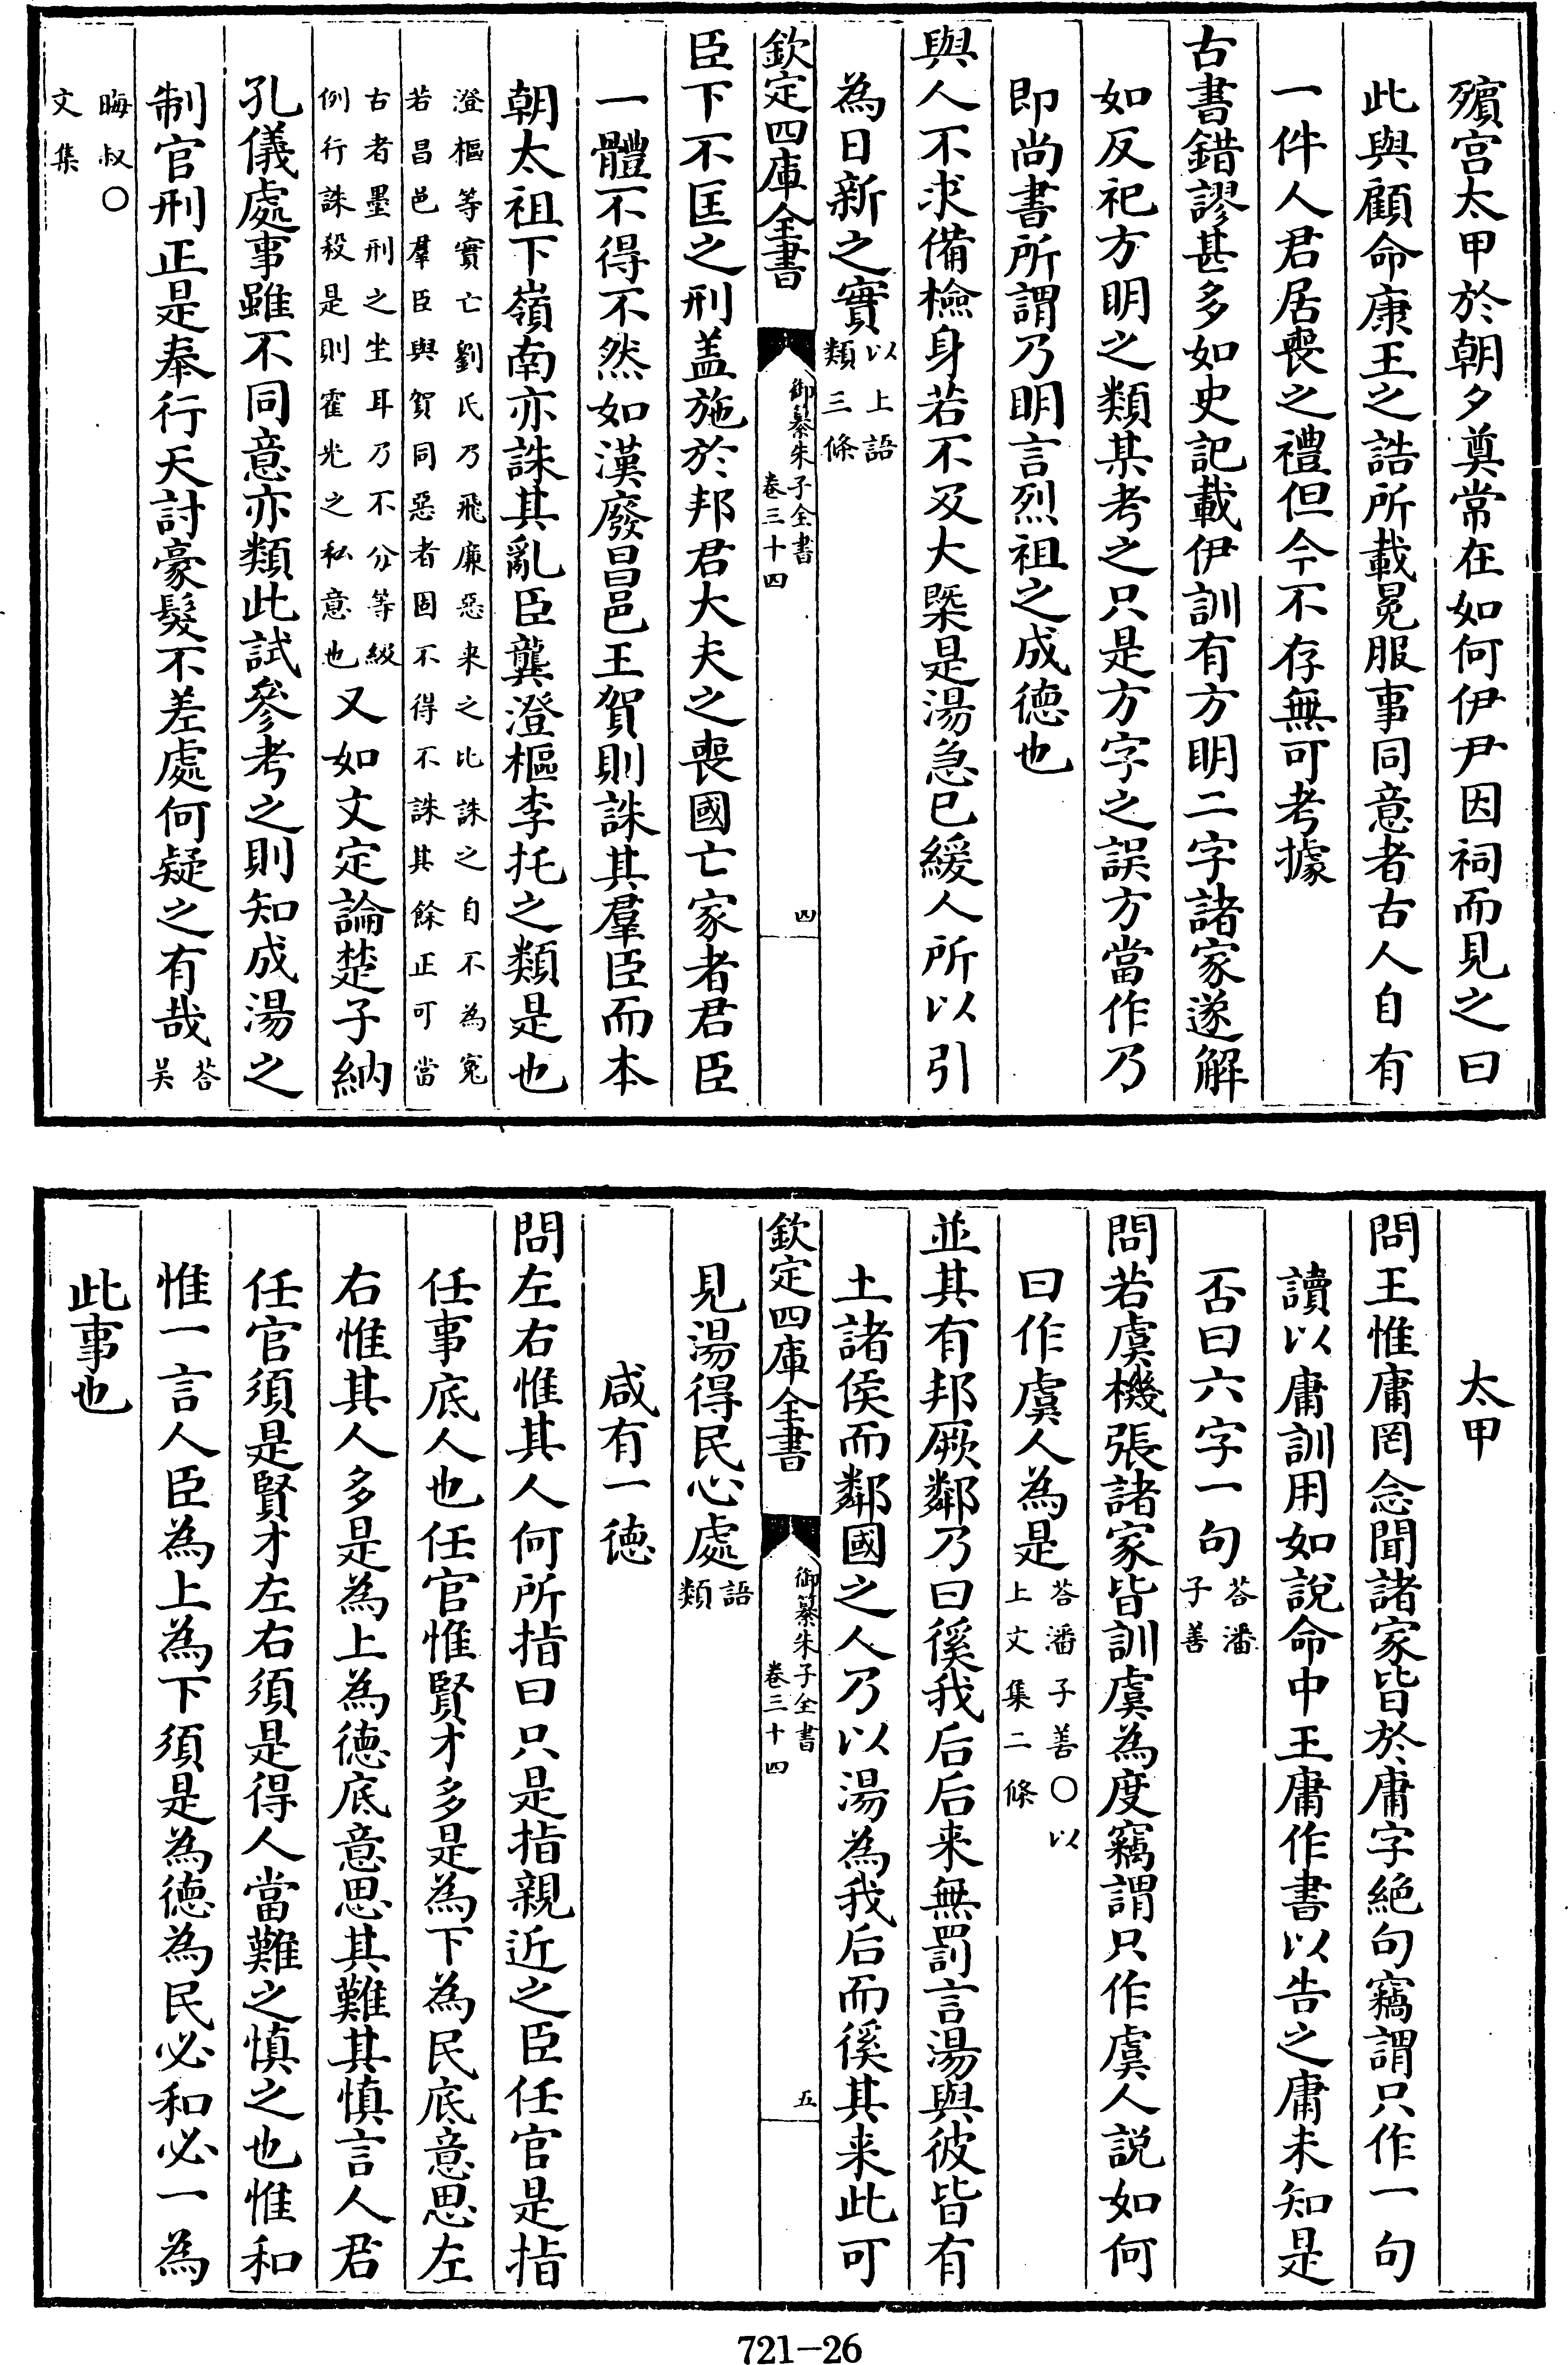 殯宫太甲於朝夕奠常在如何伊尹因祠而見之曰
此與顧命康王之誥所載冕服事同意者古人自有
一件人君居喪之禮但今不存無可考據
古書錯謬甚多如史記載伊訓有方明二字諸家遂解
如反祀方明之類某考之只是方字之誤方當作乃
即尚書所謂乃明言烈祖之成德也
與人不求備檢身若不及大槩是湯急已緩人所以引
為日新之實以上語類三條
欽定四庫全書 御纂朱子全書 卷三十四 四
臣下不匡之刑盖施於邦君大夫之喪國亡家者君臣
一體不得不然如漢廢昌邑王賀則誅其羣臣而本
朝太祖下嶺南亦誅其亂臣龔澄樞李托之類是也
澄樞等實亡劉氏乃飛廉惡来之比誅之自不為寃
若昌邑羣臣與賀同惡者固不得不誅其餘正可當
古者墨刑之坐耳乃不分等級
例行誅殺是則霍光之私意也又如文定論楚子納
孔儀處事雖不同意亦類此試參考之則知成湯之
制官刑正是奉行天討豪髮不差處何疑之有哉荅吴
晦叔○文集
太甲
問王惟庸罔念聞諸家皆於庸字絶句竊謂只作一句
讀以庸訓用如說命中王庸作書以告之庸未知是
否曰六字一句荅潘子善
問若虞機張諸家皆訓虞為度竊謂只作虞人説如何
曰作虞人為是荅潘子善○以上文集二條
並其有邦厥鄰乃曰徯我后后来無罰言湯與彼皆有
土諸侯而鄰國之人乃以湯為我后而徯其来此可
欽定四庫全書 御纂朱子全書 卷三十四 五
見湯得民心處語類
咸有一徳
問左右惟其人何所指曰只是指親近之臣任官是指
任事底人也任官惟賢才多是為下為民底意思左
右惟其人多是為上為徳底意思其難其慎言人君
任官須是賢才左右須是得人當難之慎之也惟和
惟一言人臣為上為下須是為徳為民必和必一為
此事也
721-26